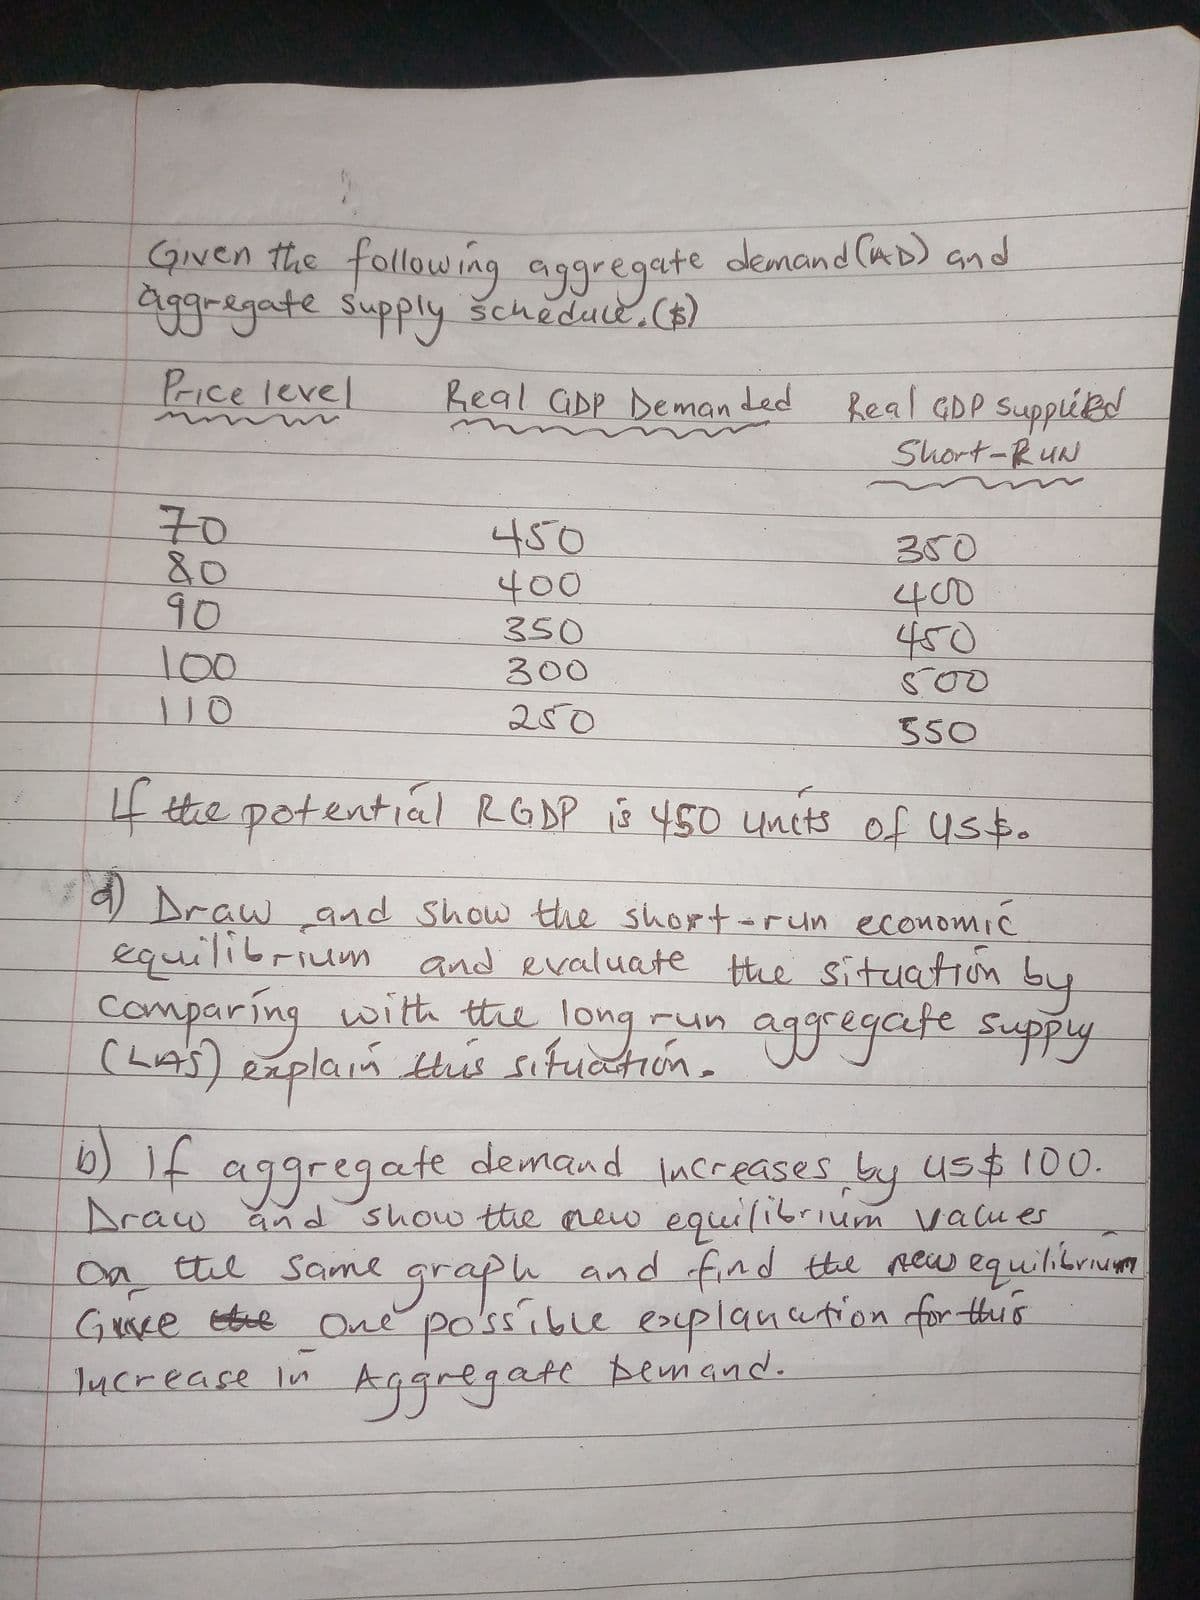 Given the following aggregate demand (AD) and
aggregate supply schedule. ($)
Price level Real GDP Demanded Real GDP Supplied
Short-RUN
70 450 350
80 400 400
90 350 450
100 300 500
110 250 550
If the potential RGDP is 450 units of US$.
a) Draw and show the short-run economic
equilibrium and evaluate the situation by
Comparing with the long run aggregate supply
(LAS) explain this situation.
b) If aggregate demand increases by US$ 100.
Draw and show the new equilibrium values
On the same graph and find the new equilibrium
Give the One possible explanation for this
Increase in Aggregate Demand.